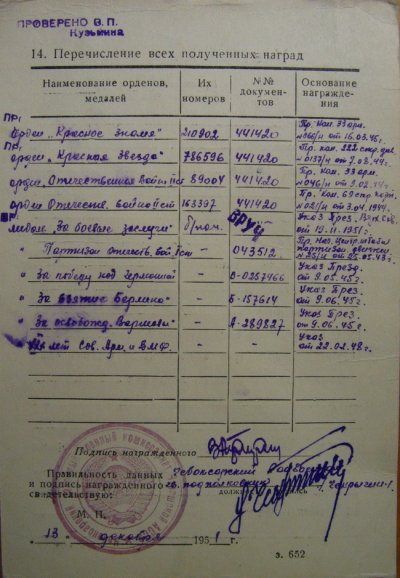 ПРОВЕРЕНО В.П.
Кузьмина
14. Перечисление всех полученных наград
Наименование орденов, медалей
Их номеров
№№ документов
Основание награждения
ПР:
орден „Красное знамя" 210902 441420 Пр. Ком. 33 арм. от 16.03.45г.
ПР:
орден „Красная Звезда" 786596 441420 Пр. ком. 222 стр. див. №0137/н от 7.03.44г.
орден Отечественной войны 89004 441420 Пр. Ком. 33 арм. №046/н от
орден Отечествен. войны 163397 441420 Пр. Ком. 69 стр. корп. от 3.04.1944.
медаль „За боевые заслуги" б/ном. ВРУЧ Указ През. от 1951г.
" Партизан отечеств. войны - 043512 Пр. Нач. Центр. штаба партизан. движен. от 05.43г.
" За победу над Германией - Указ През. от 9.05.45г.
" За взятие Берлина" - В-157614 Указ През. от 9.06.45г.
" За освобожд. Варшавы" - А-289827 Указ През. от 9.06.45г.
лет Сов. Арм. и ВМФ. - - Указ от 22.02.48г.
Подпись награжденного
Правильность данных Чебоксарский
и подпись награжденного подполковник
свидетельствую:
М. П.
„13" декабря 1951 г.
з. 652